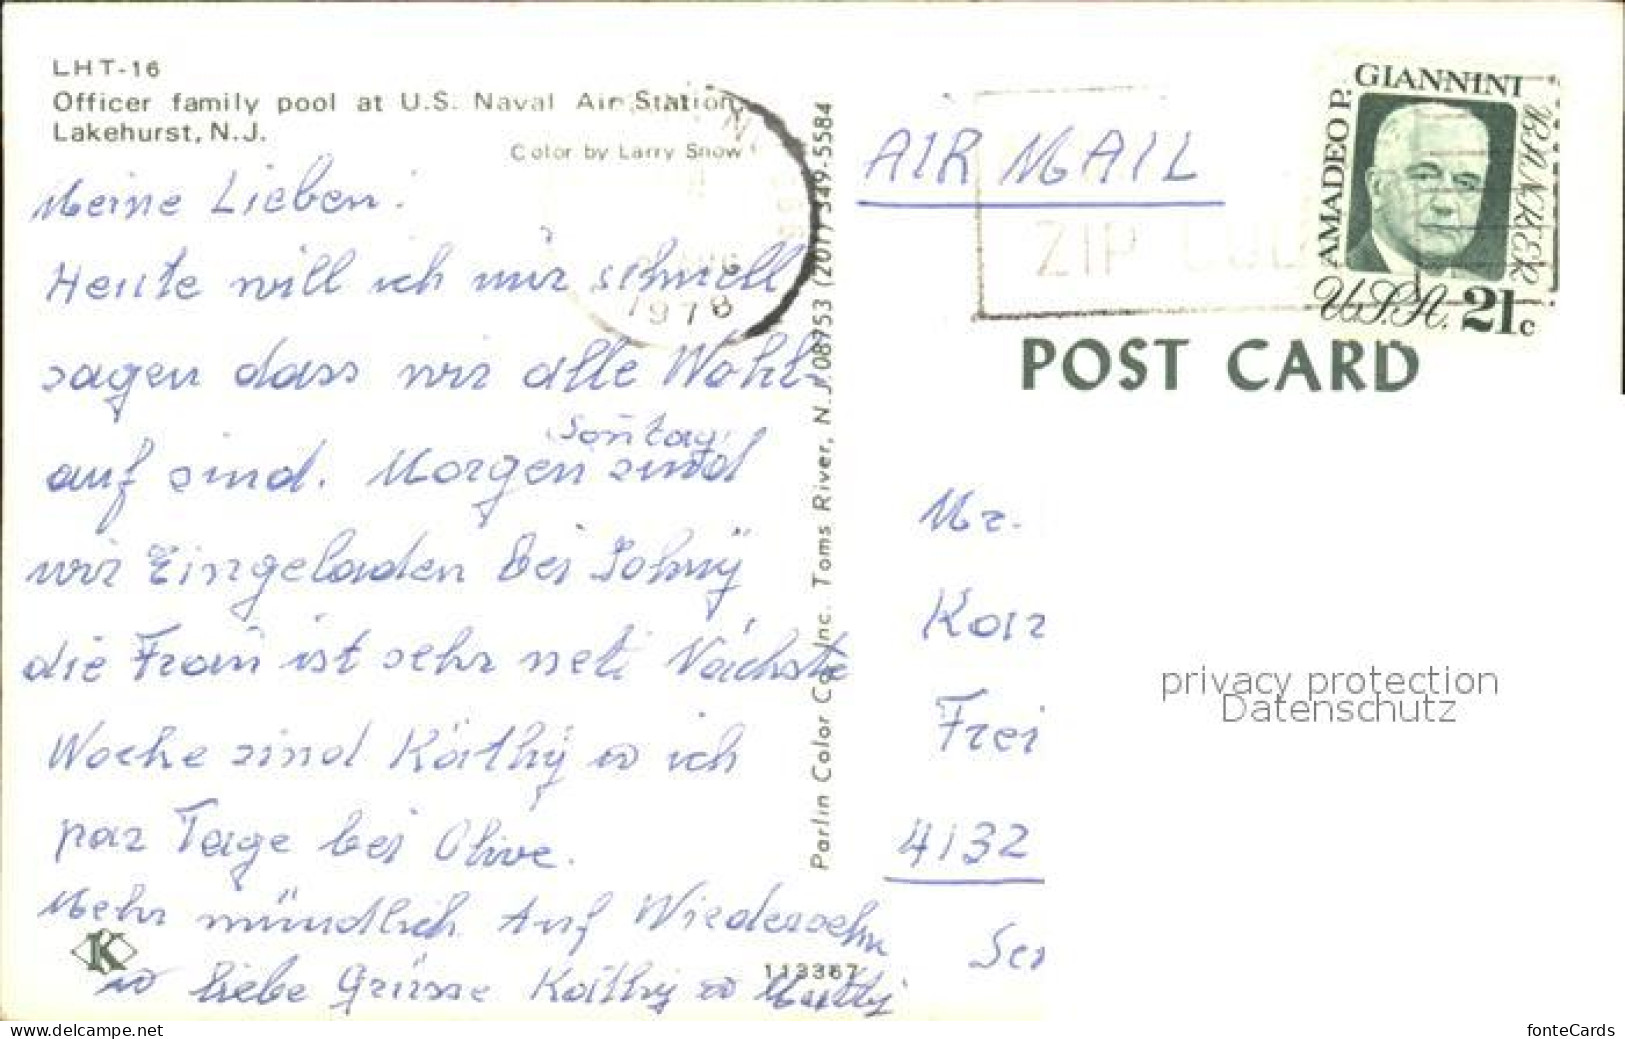 LHT-16
Officer family pool at U.S. Naval Air Station,
Lakehurst, N.J.
Color by Larry Snow
Meine Lieben!
Heute will ich nur schnell
sagen dass wir alle Wohl-
auf sind. Morgen sind
(Sontag)
wir Eingeladen Bei Johnÿ
die Frau ist sehr nett Nächste
Woche sind Käthÿ u ich
par Tage bei Olive.
Mehr mündlich Auf Wiedersehn
u liebe Grüsse Käthy u
K
113367
Parlin Color Co. Inc. Toms River, N.J. 08753 (201) 349-5584
1978
AIR MAIL
ZIP CODE
AMADEO P. GIANNINI
BANKER
U.S.A. 21c
POST CARD
Mr.
Kar
Frei
4132
privacy protection
Datenschutz
www.delcampe.net
fonteCards